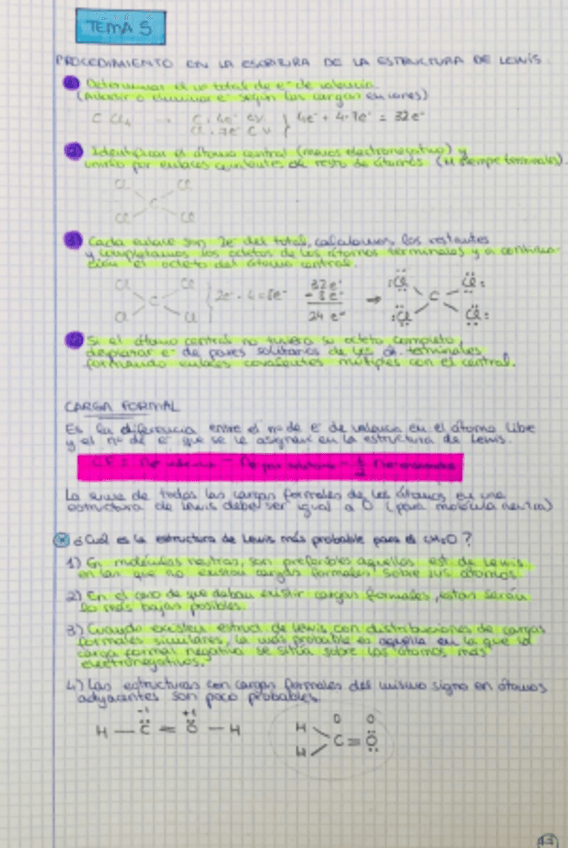 TEMA 5
PROCEDIMIENTO EN LA ESCRITURA DE LA ESTRUCTURA DE LEWIS
1 Determinar el nº total de e⁻ de valencia.
(Añadir o eliminar e⁻ según las cargas en iones)
C Cl₄ → C: 4e⁻ CV } 4e⁻ + 4·7e⁻ = 32e⁻
Cl: 7e⁻ CV
2 Identificar el átomo central (menos electronegativo) y
unirlo por enlaces covalentes al resto de átomos. (H siempre terminales)
Cl Cl
C
Cl Cl
3 Cada enlace son 2e⁻ del total, calculamos los restantes
y completamos los octetos de los átomos terminales y a continua-
ción el octeto del átomo central.
Cl Cl
C } 2e⁻ · 4 = 8e⁻
Cl Cl
32e⁻
- 8e⁻
24 e⁻
→ Cl Cl
C
Cl Cl
4 Si el átomo central no tuviera su octeto completo,
desplazar e⁻ de pares solitarios de los át. terminales
formando enlaces covalentes múltiples con el central.
CARGA FORMAL
Es la diferencia entre el nº de e⁻ de valencia en el átomo libre
y el nº de e⁻ que se le asignan en la estructura de Lewis.
CF =
La suma de todas las cargas formales de los átomos en una
estructura de Lewis debe ser igual a 0 (para molécula neutra)
¿Cuál es la estructura de Lewis más probable para el CH₂O?
1) En moléculas neutras, son preferibles aquellas est. de Lewis
en las que no existan cargas formales sobre sus átomos.
2) En el caso de que deban existir cargas formales, estas serán
lo más bajas posibles.
3) Cuando existen estruct. de Lewis con distribuciones de cargas
formales similares, la más probable es aquella en la que la
carga formal negativa se sitúa sobre los átomos más
electronegativos.
4) Las estructuras con cargas formales del mismo signo en átomos
adyacentes son poco probables.
-1 +1
H — C = O — H
0 0
H
C = O
H